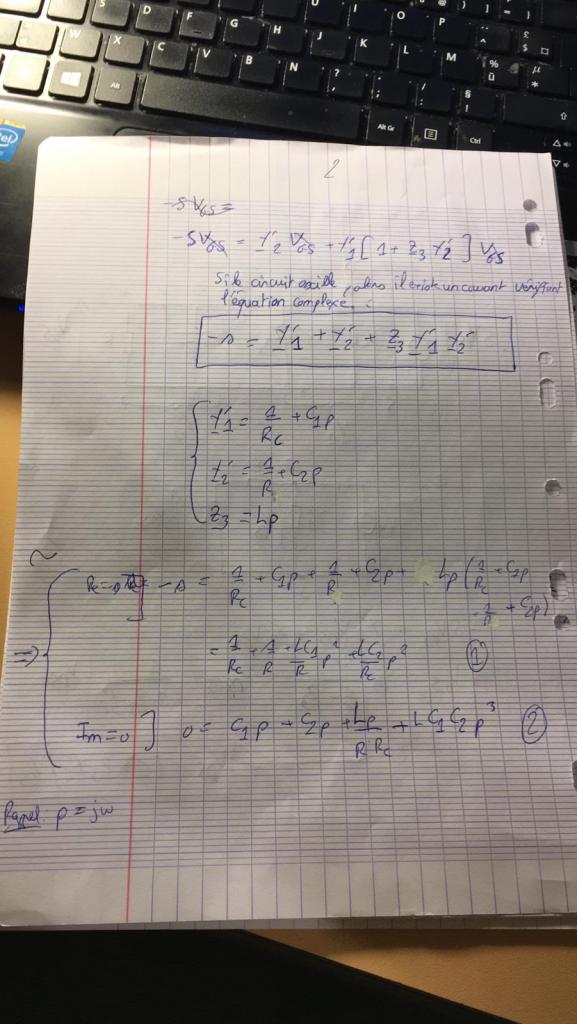 2
-s V_GS =
-s V_GS = Y'_2 V_GS + Y'_1 [ 1 + Z_3 Y'_2 ] V_GS
Si le circuit oscille, alors il existe un courant vérifiant
l'équation complexe :
-s = Y'_1 + Y'_2 + Z_3 Y'_1 Y'_2
Y'_1 = 1/R_C + C_1 p
Y'_2 = 1/R + C_2 p
Z_3 = Lp
-s = 1/R_C + C_1 p + 1/R + C_2 p + Lp ( 1/R_C + C_1 p
. 1/R + C_2 p )
⇒ = 1/R_C + 1/R + LC_1/R p² + LC_2/R_C p² ①
Im = 0 ] 0 = C_1 p + C_2 p + Lp/R R_C + L C_1 C_2 p³ ②
Rappel : p = jw
W X C V B N ? . / § !
Alt Alt Gr Ctrl
D F G H J K L M
U I O P
£ $ % ù µ *
intel